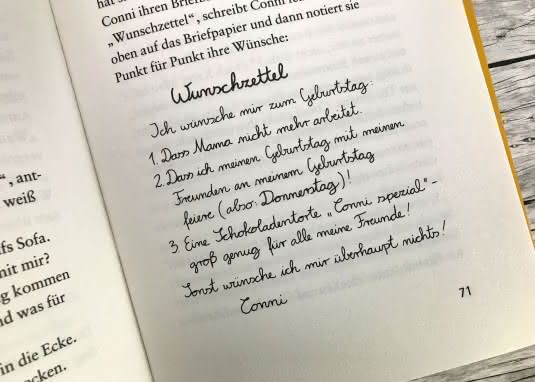 hat s
Conni ihren Briefbo
„Wunschzettel“, schreibt Conni
oben auf das Briefpapier und dann notiert sie
Punkt für Punkt ihre Wünsche:
Wunschzettel
Ich wünsche mir zum Geburtstag:
1. Dass Mama nicht mehr arbeitet.
2. Dass ich meinen Geburtstag mit meinen
Freunden an meinem Geburtstag
feiere (also: Donnerstag)!
3. Eine Schokoladentorte „Conni spezial“ –
groß genug für alle meine Freunde!
Sonst wünsche ich mir überhaupt nichts!
Conni
71
“, ant-
weiß
fs Sofa.
mit mir?
g kommen
nd was für
in die Ecke.
cken.